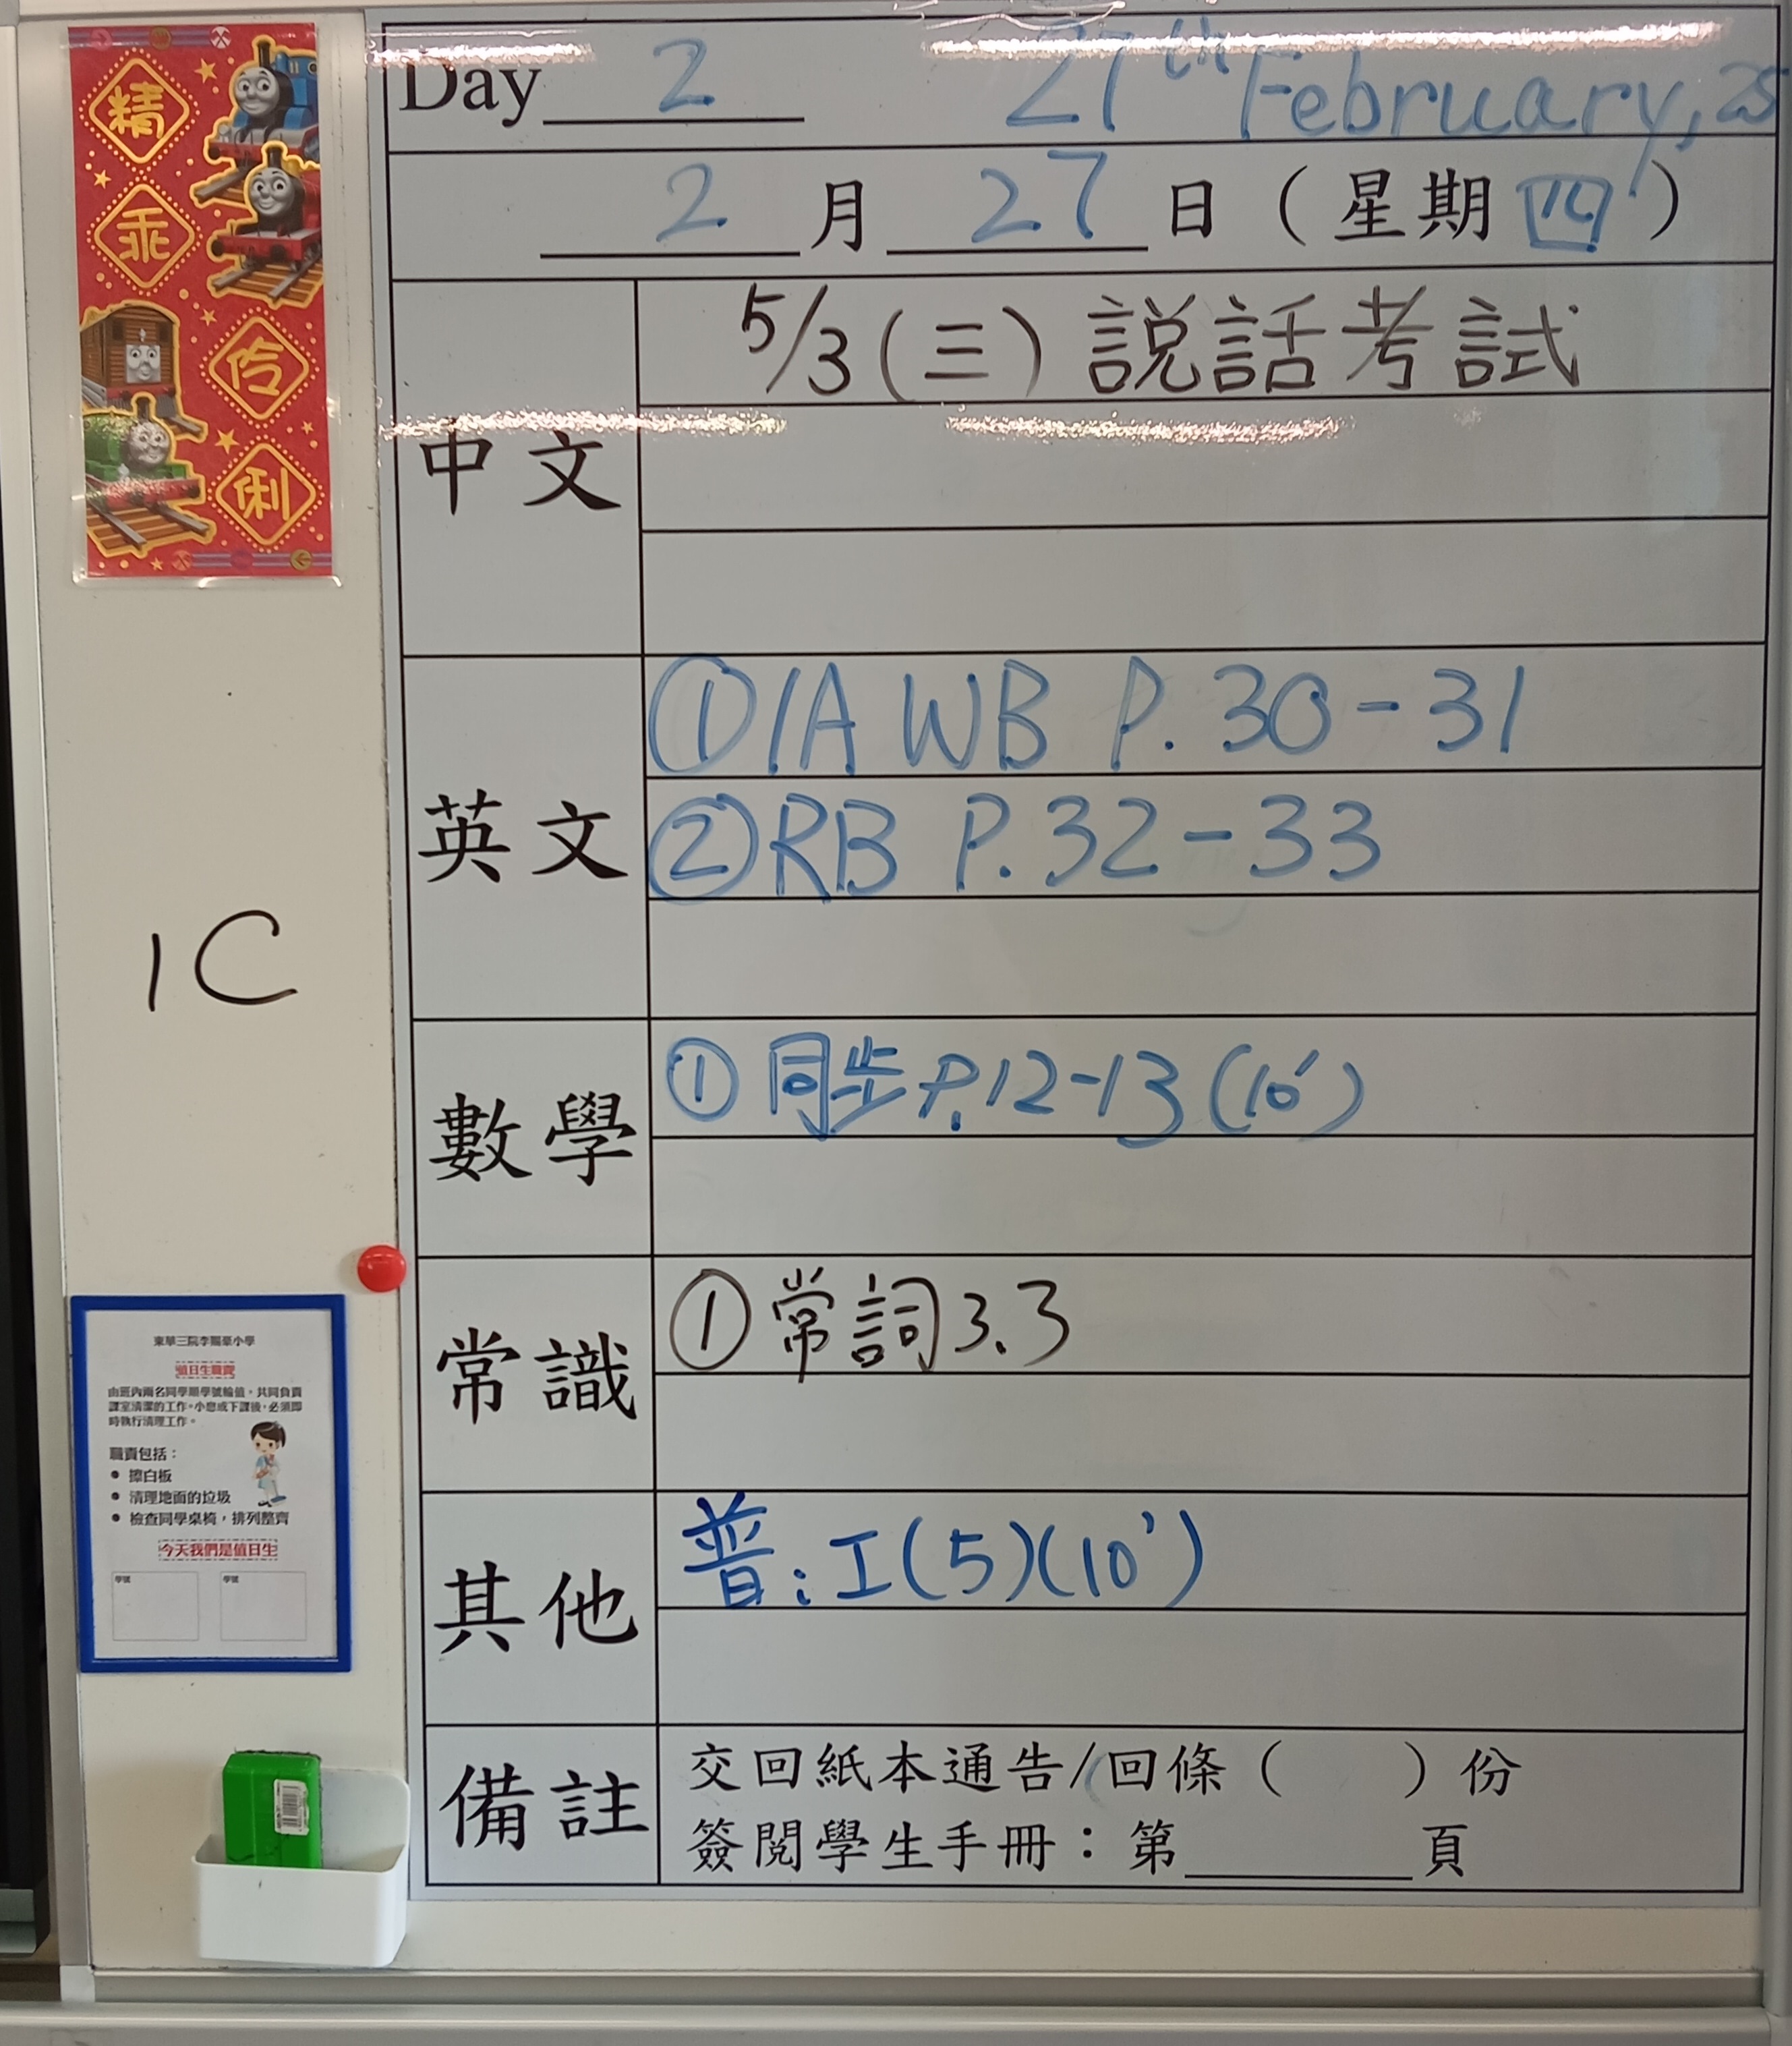 精
乖
伶
俐
Day 2 27th February, 25
2 月 27 日 ( 星期 四 )
中文
5/3 (三) 説話考試
英文
① 1A WB P. 30 - 31
② RB P. 32 - 33
1C
數學
① 同步 P.12-13 (10')
常識
① 常詞 3.3
其他
普: I (5) (10')
備註
交回紙本通告/回條 ( ) 份
簽閱學生手冊：第______頁
東華三院李賜豪小學
值日生職責
由班內兩名同學順學號輪值，共同負責
課室清潔的工作。小息或下課後，必須即
時執行清理工作。
職責包括：
• 擦白板
• 清理地面的垃圾
• 檢查同學桌椅，排列整齊
今天我們是值日生
學號 學號